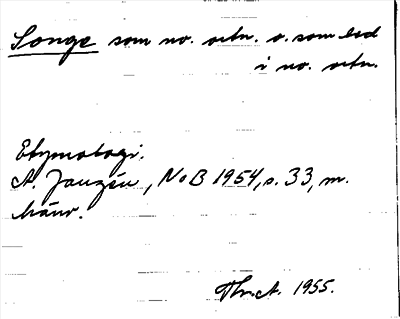 Songe som no. ortn. o. som led
i no. ortn.
Etymologi.
A. Janzén, NoB 1954, s. 33, m.
hänv.
Th. A. 1955.